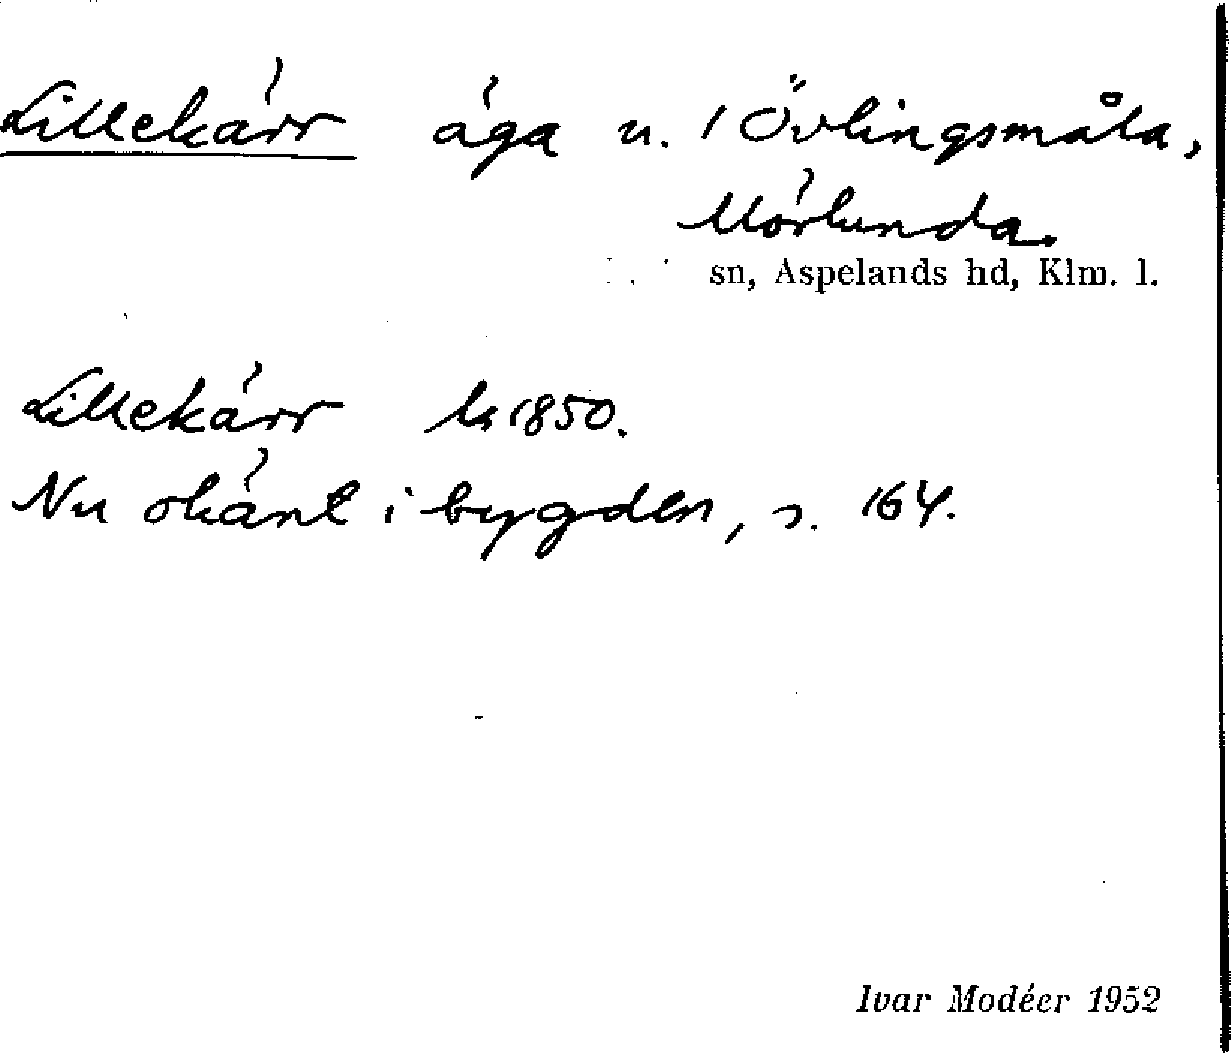 Lillekärr äga u. 1 Övlingsmåla,
Mörlunda.
sn, Aspelands hd, Klm. l.
Lillekärr ls 1850.
Nu okänt i bygden, s. 164.
Ivar Modéer 1952